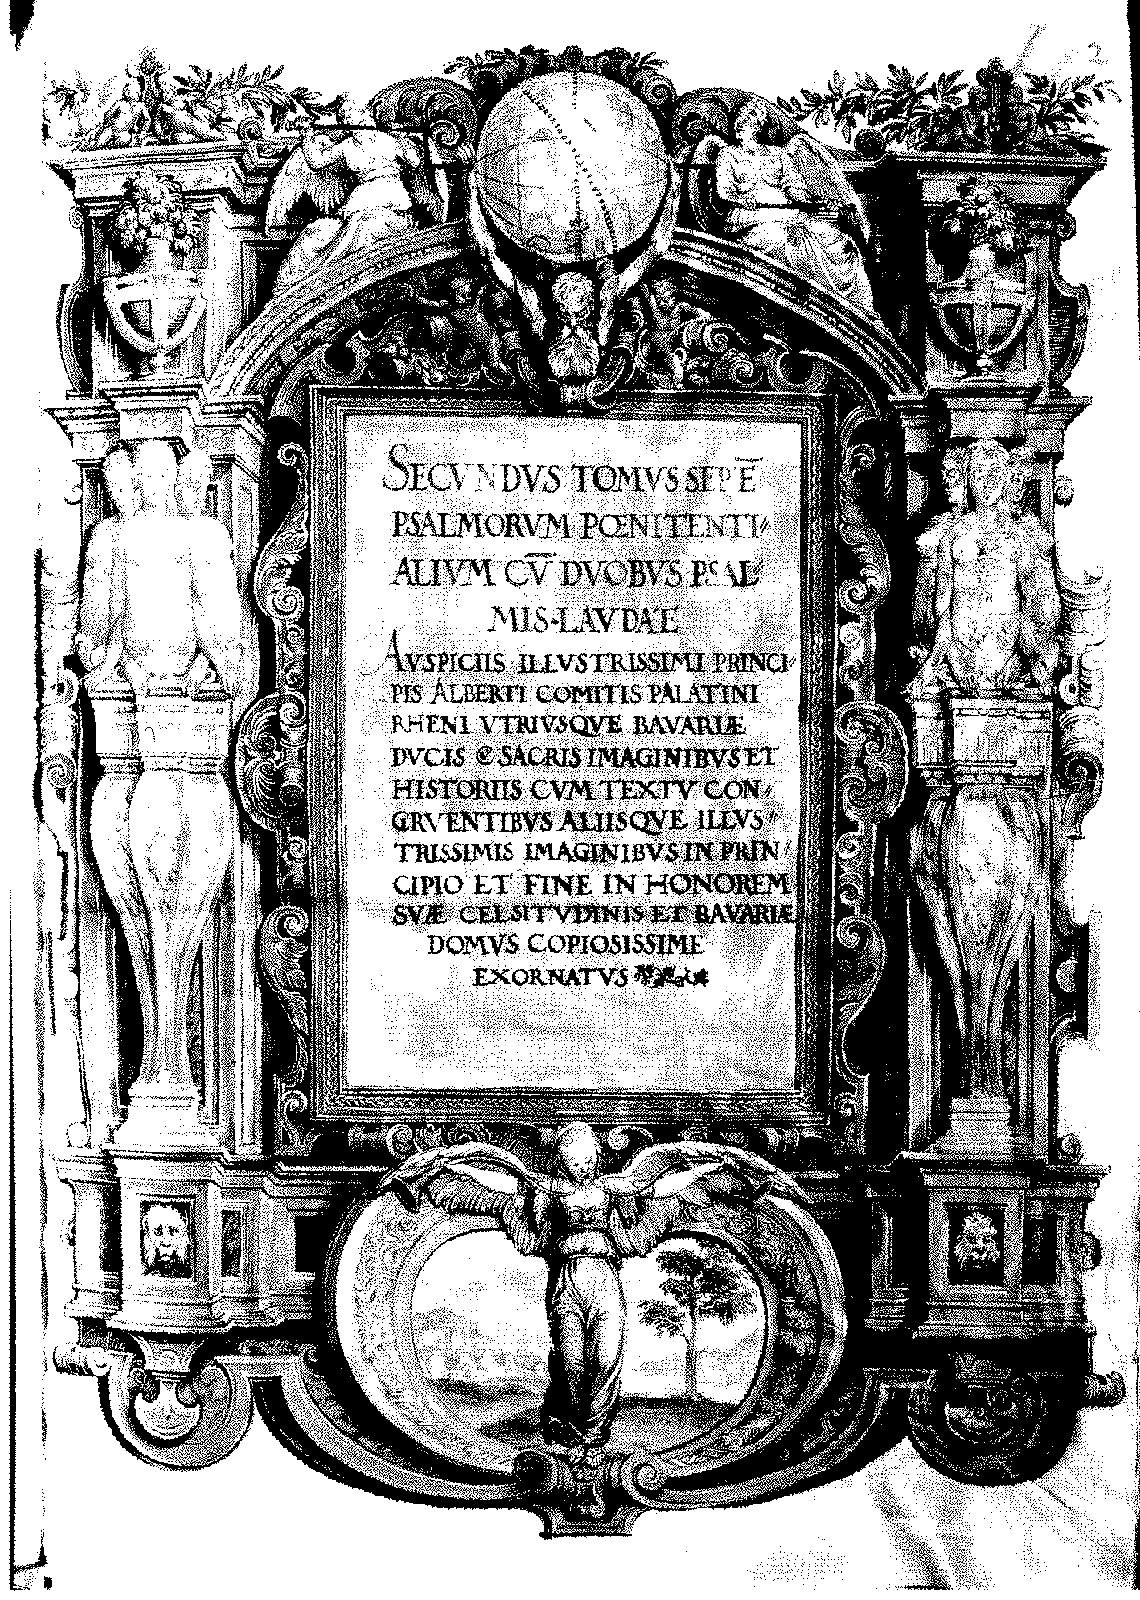 SECVNDVS TOMVS SEPĒ
PSALMORVM PŒNITENTI⸗
ALIVM CV̄ DVOBVS PSAL⸗
MIS·LAVDAE
AVSPICIIS ILLVSTRISSIMI PRINCI⸗
PIS ALBERTI COMITIS PALATINI
RHENI VTRIVSQVE BAVARIÆ
DVCIS & SACRIS IMAGINIBVS ET
HISTORIIS CVM TEXTV CON⸗
GRVENTIBVS ALIISQVE ILLVS⸗
TRISSIMIS IMAGINIBVS IN PRIN⸗
CIPIO ET FINE IN HONOREM
SVÆ CELSITVDINIS ET BAVARIÆ
DOMVS COPIOSISSIME
EXORNATVS